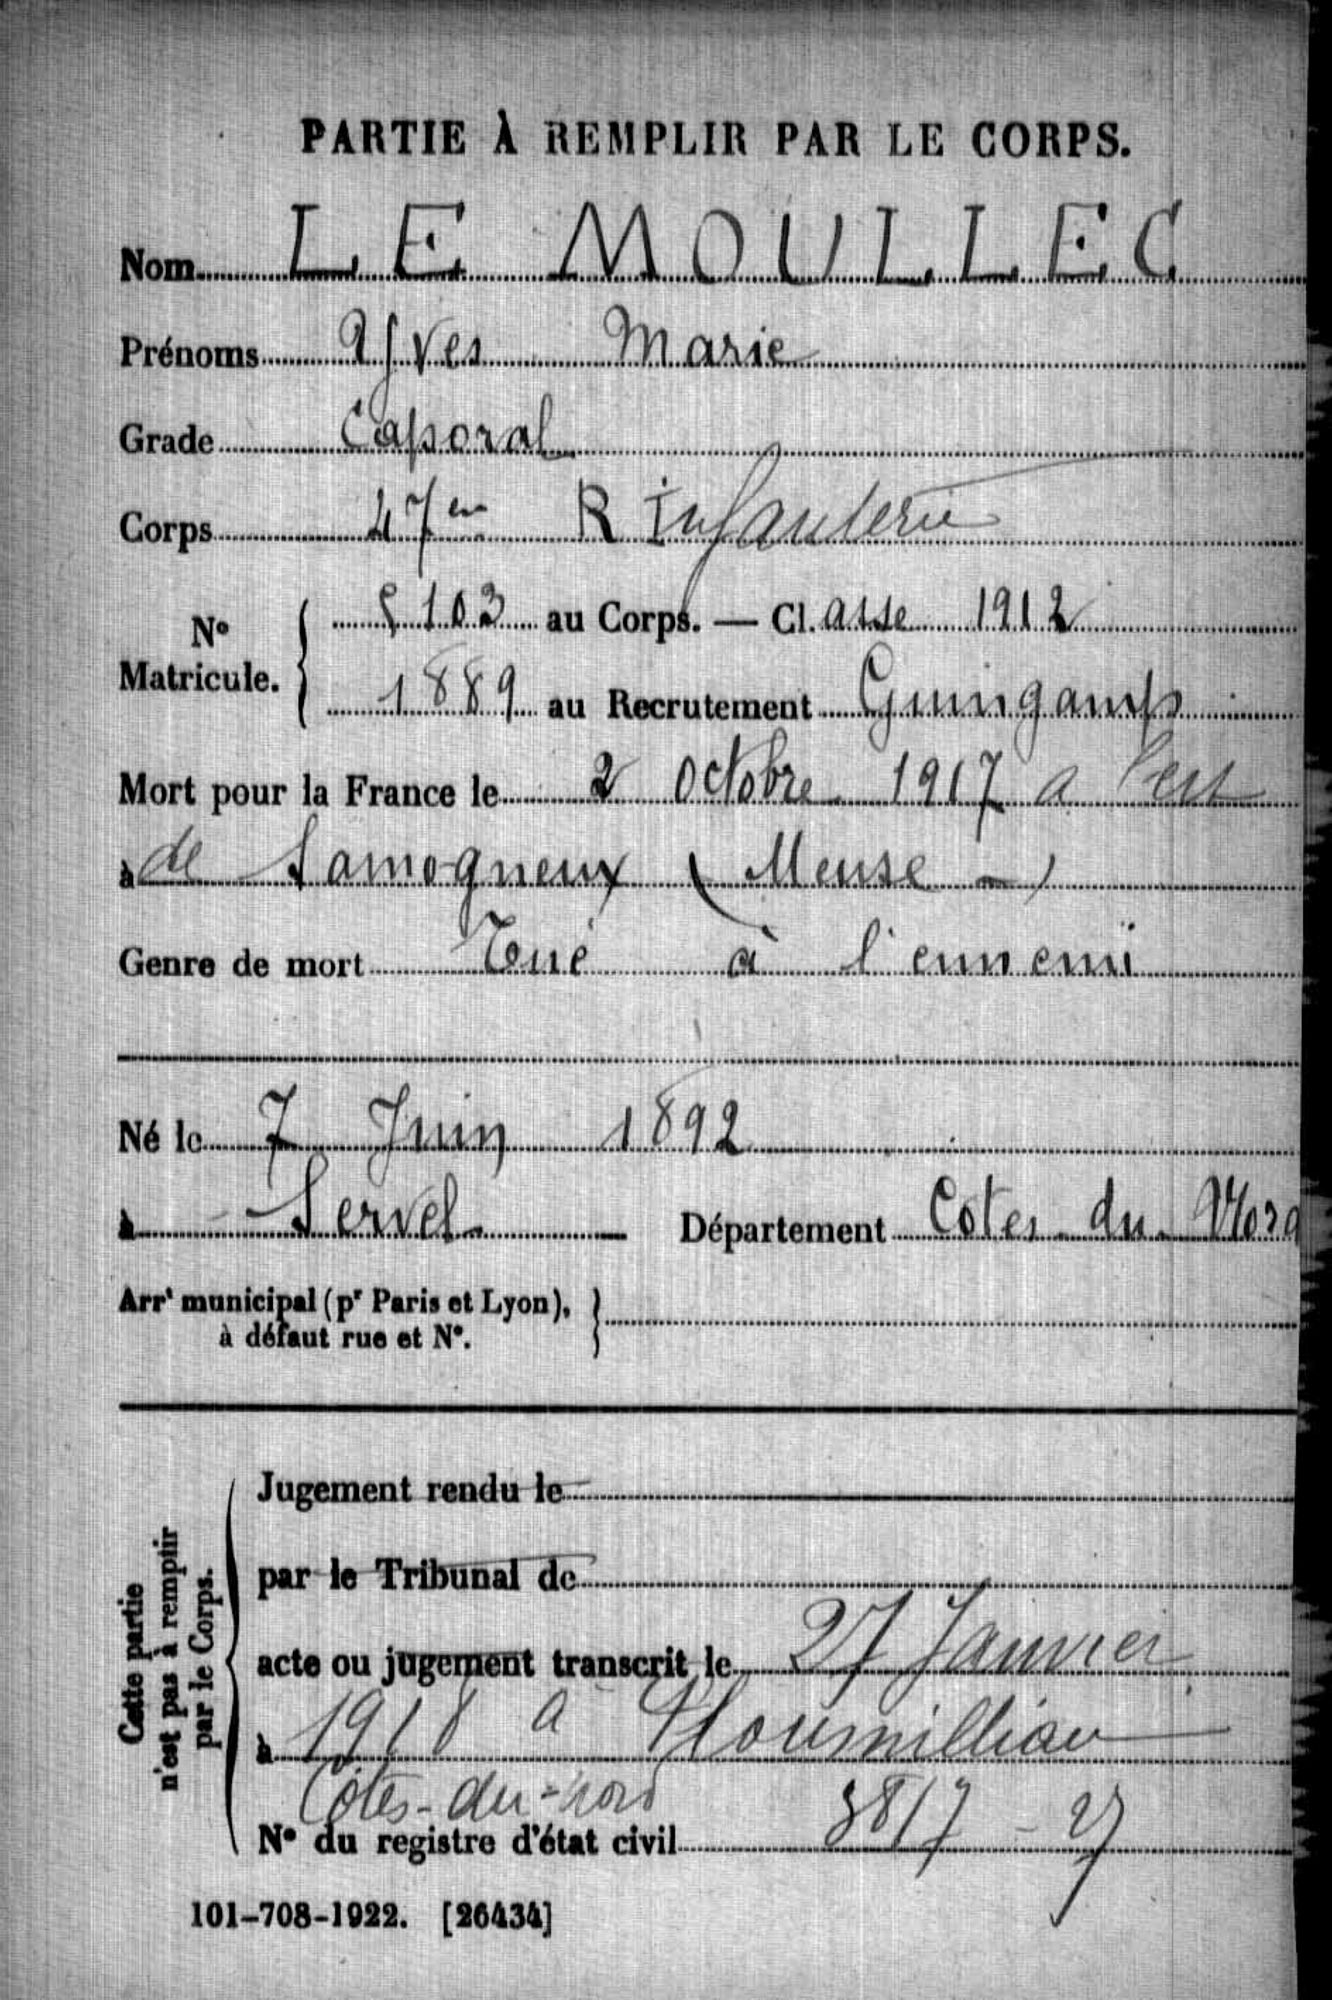 PARTIE À REMPLIR PAR LE CORPS.
Nom LE MOULLEC
Prénoms Yves Marie
Grade Caporal
Corps 47em R Infanterie
N° Matricule. { 5103 au Corps. — Cl. asse 1912
1889 au Recrutement Guingamp
Mort pour la France le 2 Octobre 1917 a l'est
à de Samogneux (Meuse -)
Genre de mort Tué à l'ennemi
Né le 7 Juin 1892
à Servel Département Cotes du Nord
Arrt municipal (pr Paris et Lyon), }
à défaut rue et N°.
Cette partie
n'est pas à remplir
par le Corps.
Jugement rendu le
par le Tribunal de
acte ou jugement transcrit le 27 Janvier
à 1918 a Ploumilliau
Côtes-du-nord
N° du registre d'état civil 3817 - 27
101-708-1922. [26434]